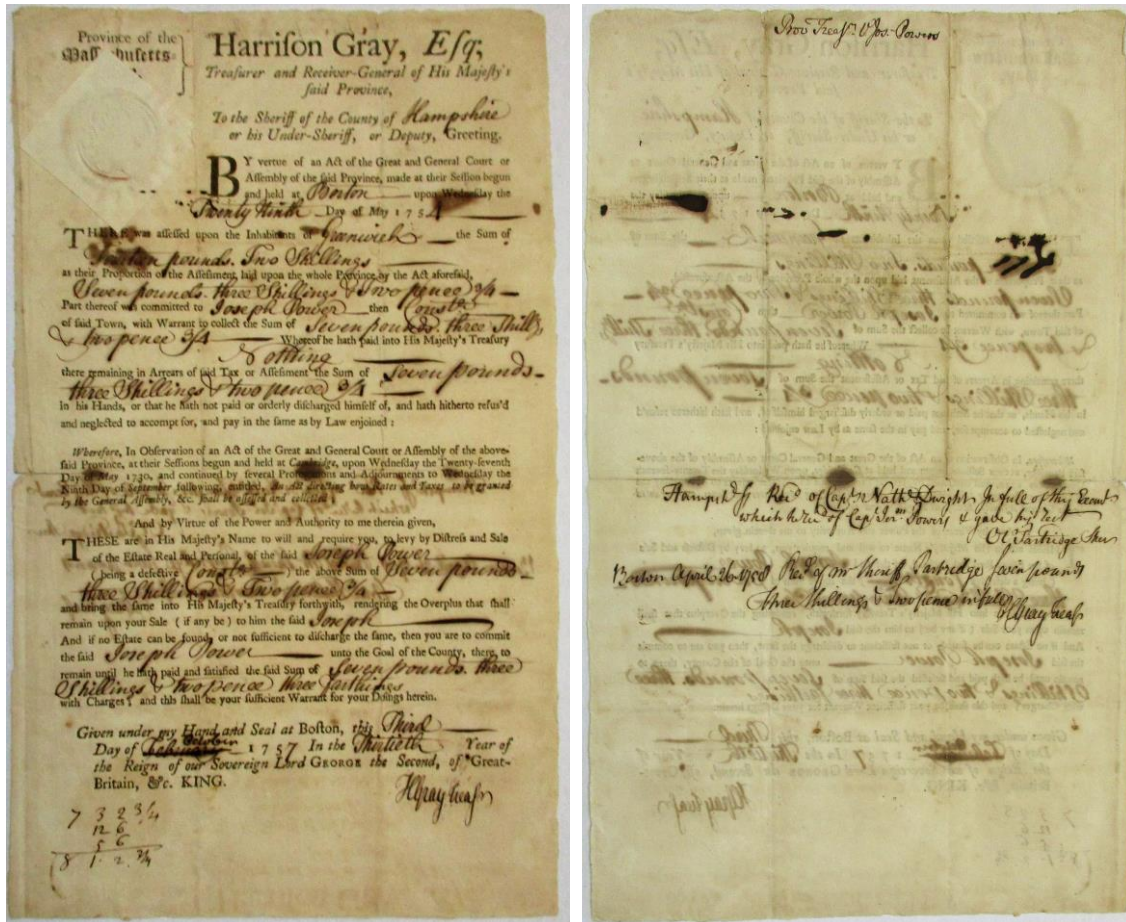 Province of the
Massachusetts-
Harrison Gray, Esq;
Treasurer and Receiver-General of His Majesty's
said Province,
To the Sheriff of the County of Hampshire
or his Under-Sheriff, or Deputy, Greeting.
BY vertue of an Act of the Great and General Court or
Assembly of the said Province, made at their Session begun
and held at Boston upon Wednesday the
Twenty Ninth Day of May 1754
THERE was assessed upon the Inhabitants of Greenwich the Sum of
pounds. Two Shillings
as their Proportion of the Assessment laid upon the whole Province by the Act aforesaid,
Seven pounds. three Shillings & Two pence 3/4
Part thereof was committed to Joseph Power then Constbe
of said Town, with Warrant to collect the Sum of Seven pounds. three Shills
& two pence 3/4 Whereof he hath paid into His Majesty's Treasury
Nothing
there remaining in Arrears of said Tax or Assessment the Sum of Seven pounds
three Shillings & two pence 3/4
in his Hands, or that he hath not paid or orderly discharged himself of, and hath hitherto refus'd
and neglected to accompt for, and pay in the same as by Law enjoined :
Wherefore, In Observation of an Act of the Great and General Court or Assembly of the above-
said Province, at their Sessions begun and held at Cambridge, upon Wednesday the Twenty-seventh
Day of May 1730, and continued by several Prorogations and Adjournments to Wednesday the
Ninth Day of September following, intitled, An Act directing how Rates and Taxes to be granted
by the General Assembly, &c. shall be assessed and collected ;
And by Virtue of the Power and Authority to me therein given,
THESE are in His Majesty's Name to will and require you, to levy by Distress and Sale
of the Estate Real and Personal, of the said Joseph Power
(being a defective Constbe) the above Sum of Seven pounds
three Shillings & Two pence 3/4
and bring the same into His Majesty's Treasury forthwith, rendering the Overplus that shall
remain upon your Sale ( if any be ) to him the said Joseph
And if no Estate can be found, or not sufficient to discharge the same, then you are to commit
the said Joseph Power unto the Goal of the County, there to
remain until he hath paid and satisfied the said Sum of Seven pounds. three
Shillings & two pence three farthings
with Charges ; and this shall be your sufficient Warrant for your Doings herein.
Given under my Hand and Seal at Boston, this Third
Day of October 1757 In the Thirtieth Year of
the Reign of our Sovereign Lord GEORGE the Second, of Great-
Britain, &c. KING.
HGray Treasr
7 3 2 3/4
12 6
5 6
8 1 2 3/4
Prov Treasr v Jos. Powers
Hampsh ss Recd of Capt Nathl Dwight In full of this Execut
which he recd of Capt Powers & gave his rect
Ol Partridge Sher
Boston April 26 1758 Recd of mr Sheriff Partridge Seven pounds
three Shillings & Two pence in full
HGray Treasr